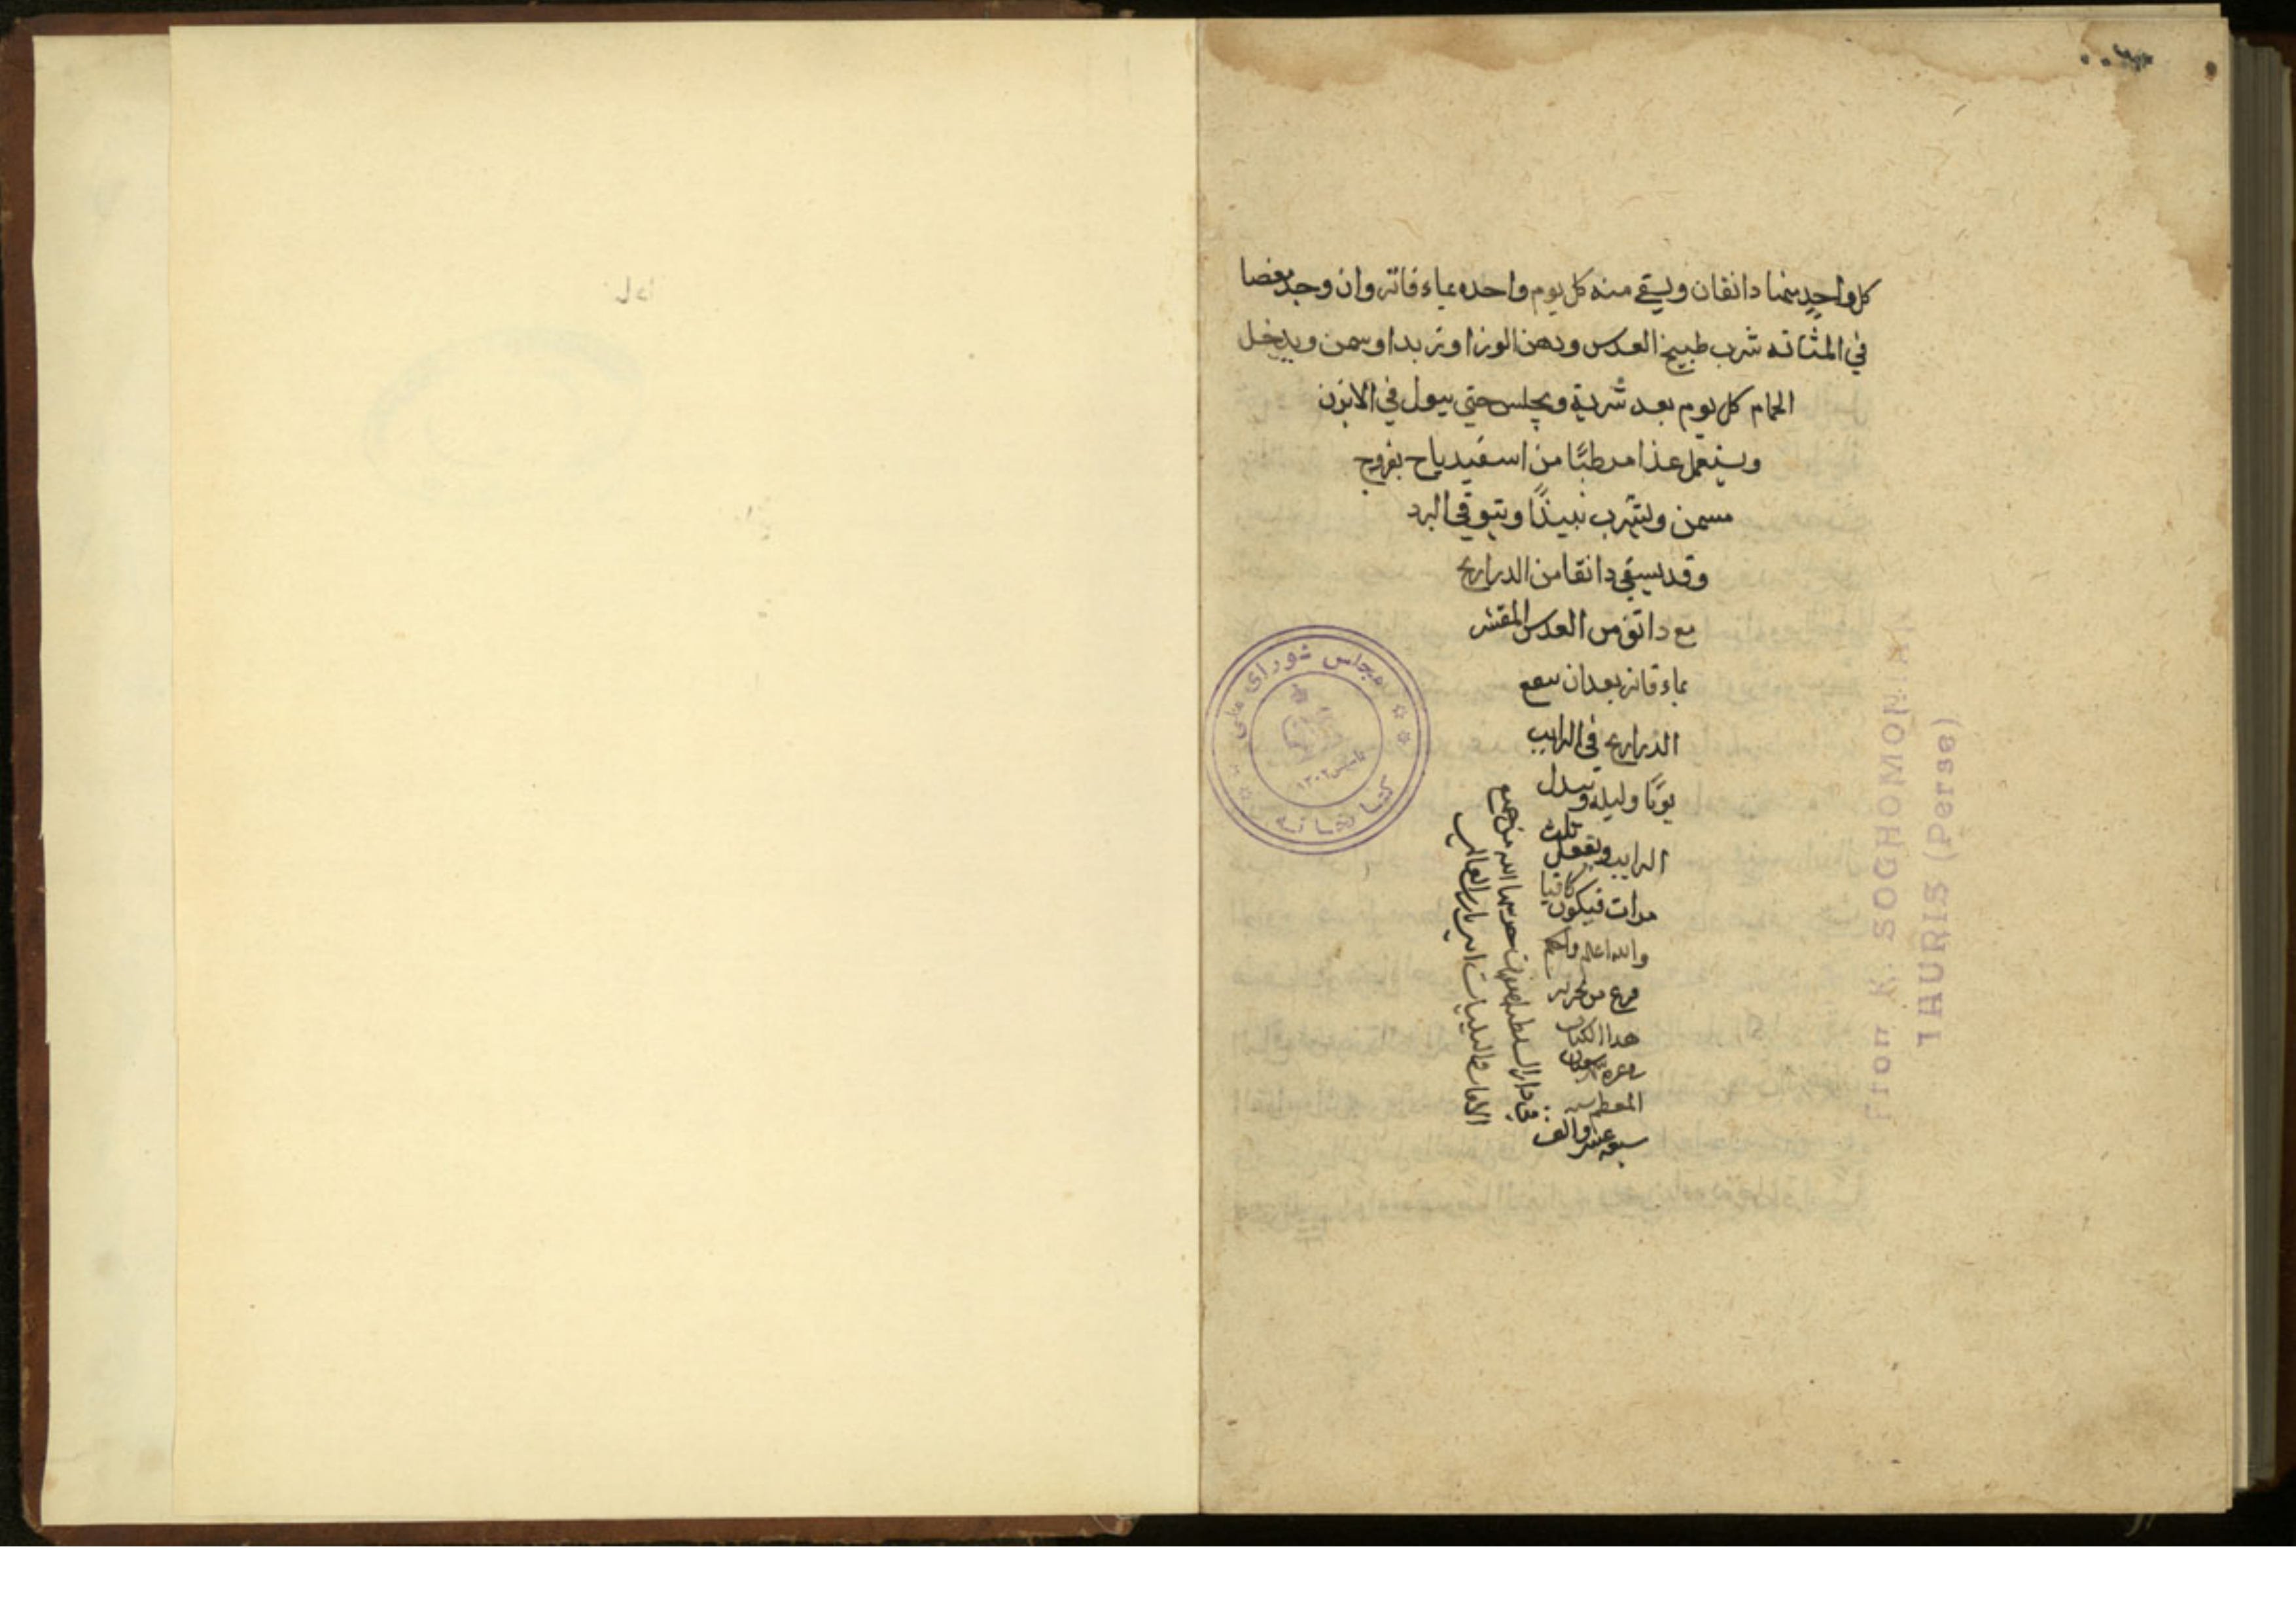 كل واحد منها دانقان ويسقى منه كل يوم واحده بماء فاتر وان وجد مغصا
في المثانه شرب طبيخ العدس ودهن اللوز او زبدا وسمن ويدخل
الحمام كل يوم بعد شربة ويجلس حتى يبول في الابزن
ويستعمل غذا مرطبًا من اسفيدباج بفروج
مسمن وليشرب نبيذًا ويتوقى البرد
وقد يسقى دانقا من الدراريح
مع دانق من العدس المقشر
بماء فاتر بعد ان ينقع
الدراريح في الرايب
يومًا وليله ويبدل
الرايب ويفعل ثلث
مرات فيكون كافيا
والله اعلم
فرغ من تحرير
هذا الكتاب
في غره شعبان
المعظم سنه
سبعه عشر والف
في دار السلطنه حرسها الله من جميع
الافات والبليات
مجلس شورای ملی
کتابخانه
تأسیس ۱۳۰۲
K. SOGHOMONIAN
TAURIS (Perse)